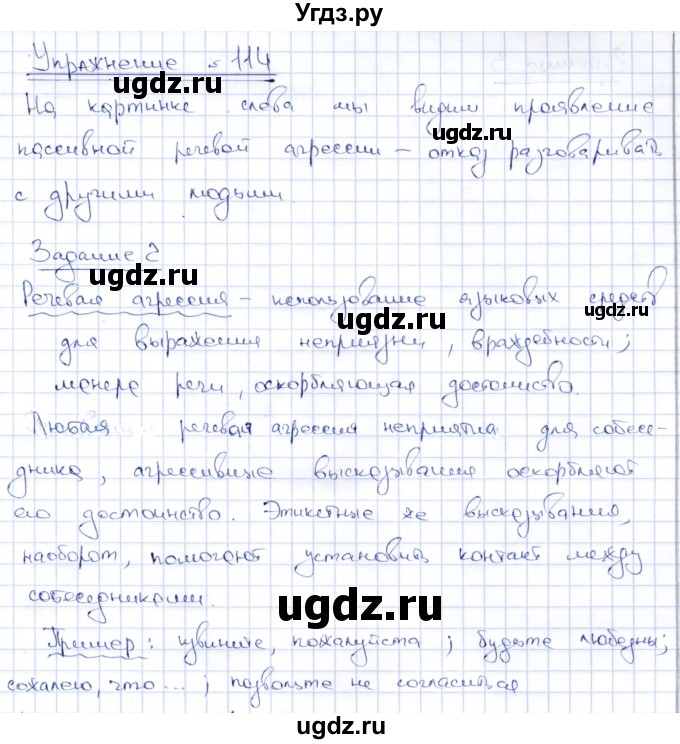 Угдз.ру
Упражнение № 114
ugdz.ru
На картинке слова мы видим проявление
ugdz.ru
пассивной речевой агрессии – отказ разговаривать
с другими людьми.
Задание 2
ugdz.ru
Речевая агрессия – использование языковых средств
ugdz.ru ugdz.ru
для выражения неприязни, враждебности;
манера речи, оскорбляющая достоинство.
Любая речевая агрессия неприятна для собесе-
дника, агрессивные высказывания оскорбляют
его достоинство. Этикетные же высказывания,
наоборот, помогают установить контакт между
собеседниками.
ugdz.ru
Пример: извините, пожалуйста; будьте любезны;
сожалею, что...; позвольте не согласиться
ugdz.ru